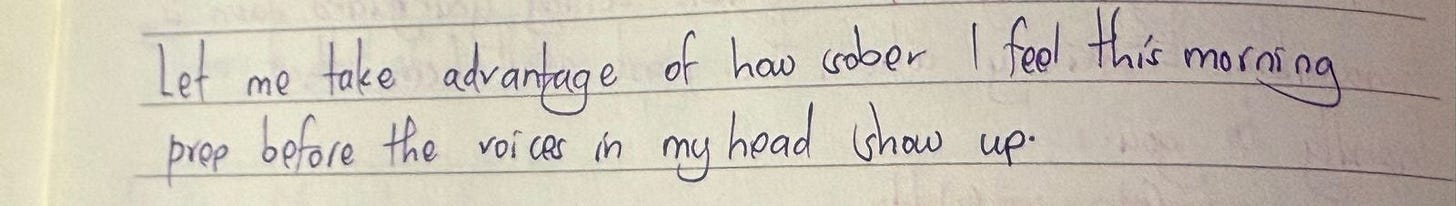 Let me take advantage of how sober I feel this morning
prep before the voices in my head show up.